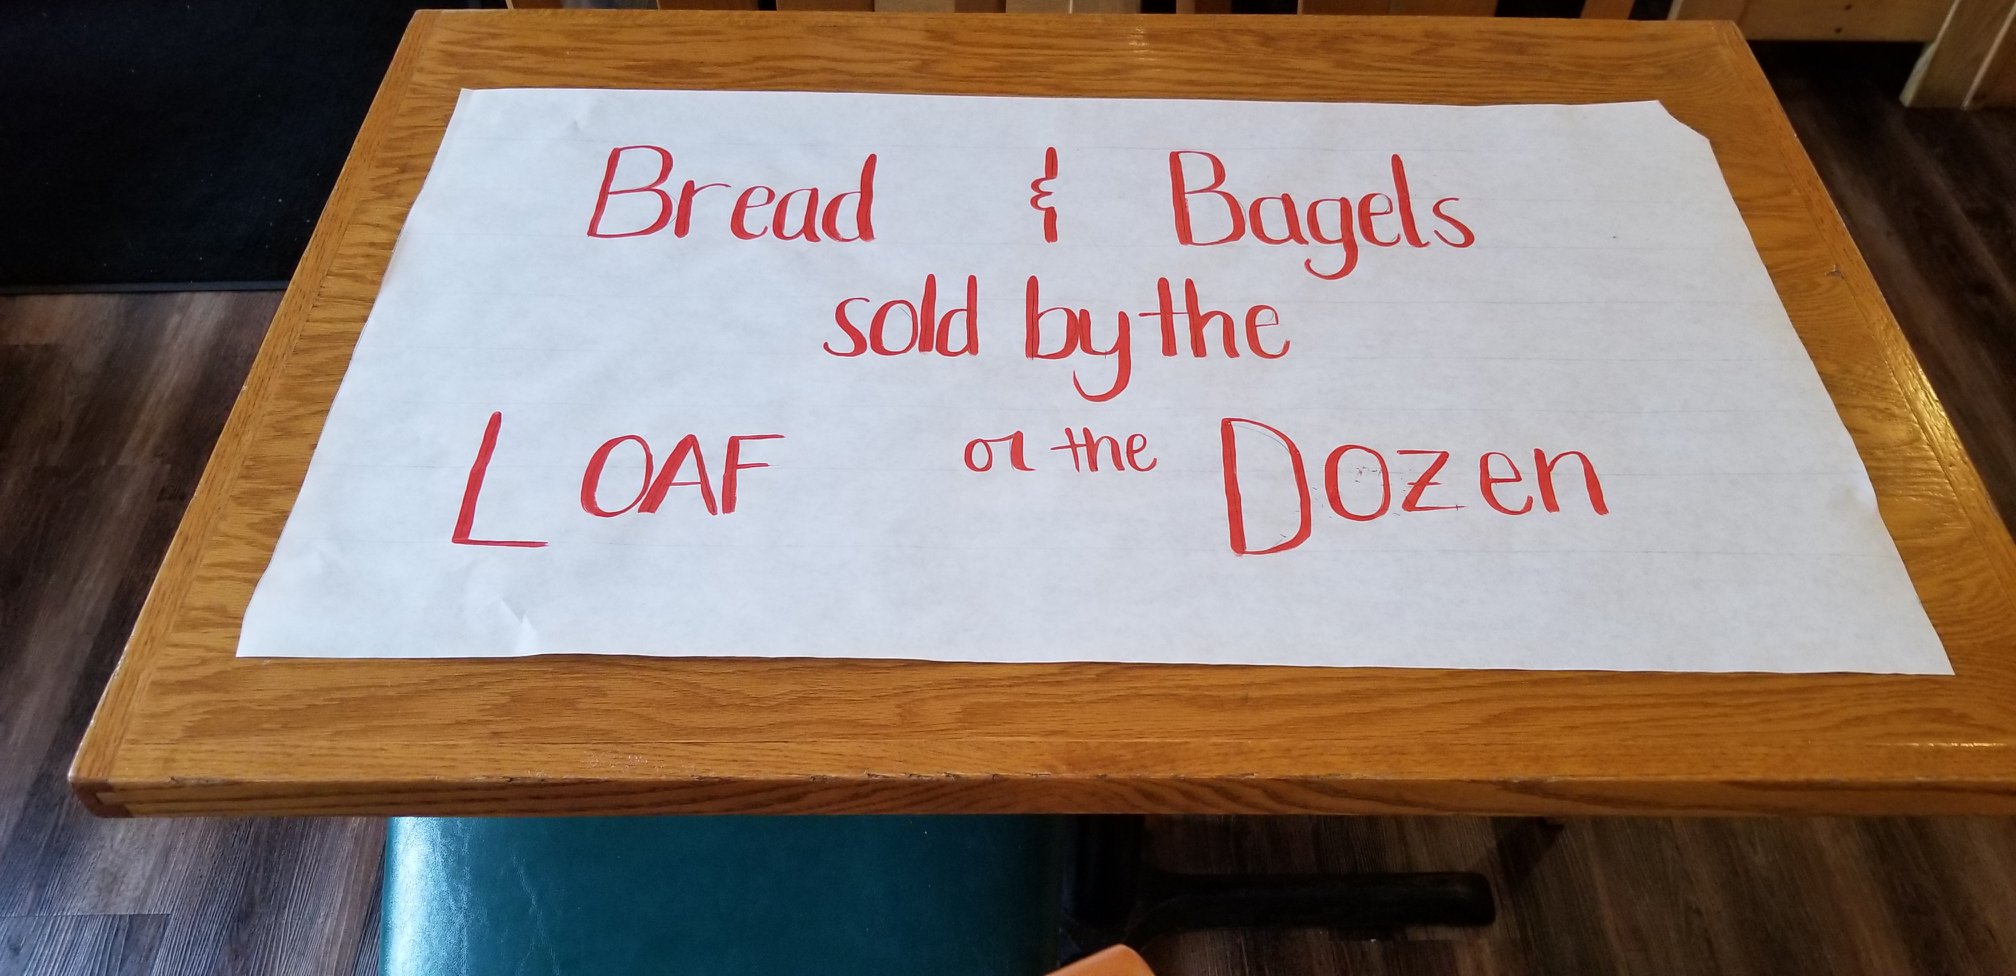 Bread & Bagels
sold by the
LOAF or the Dozen